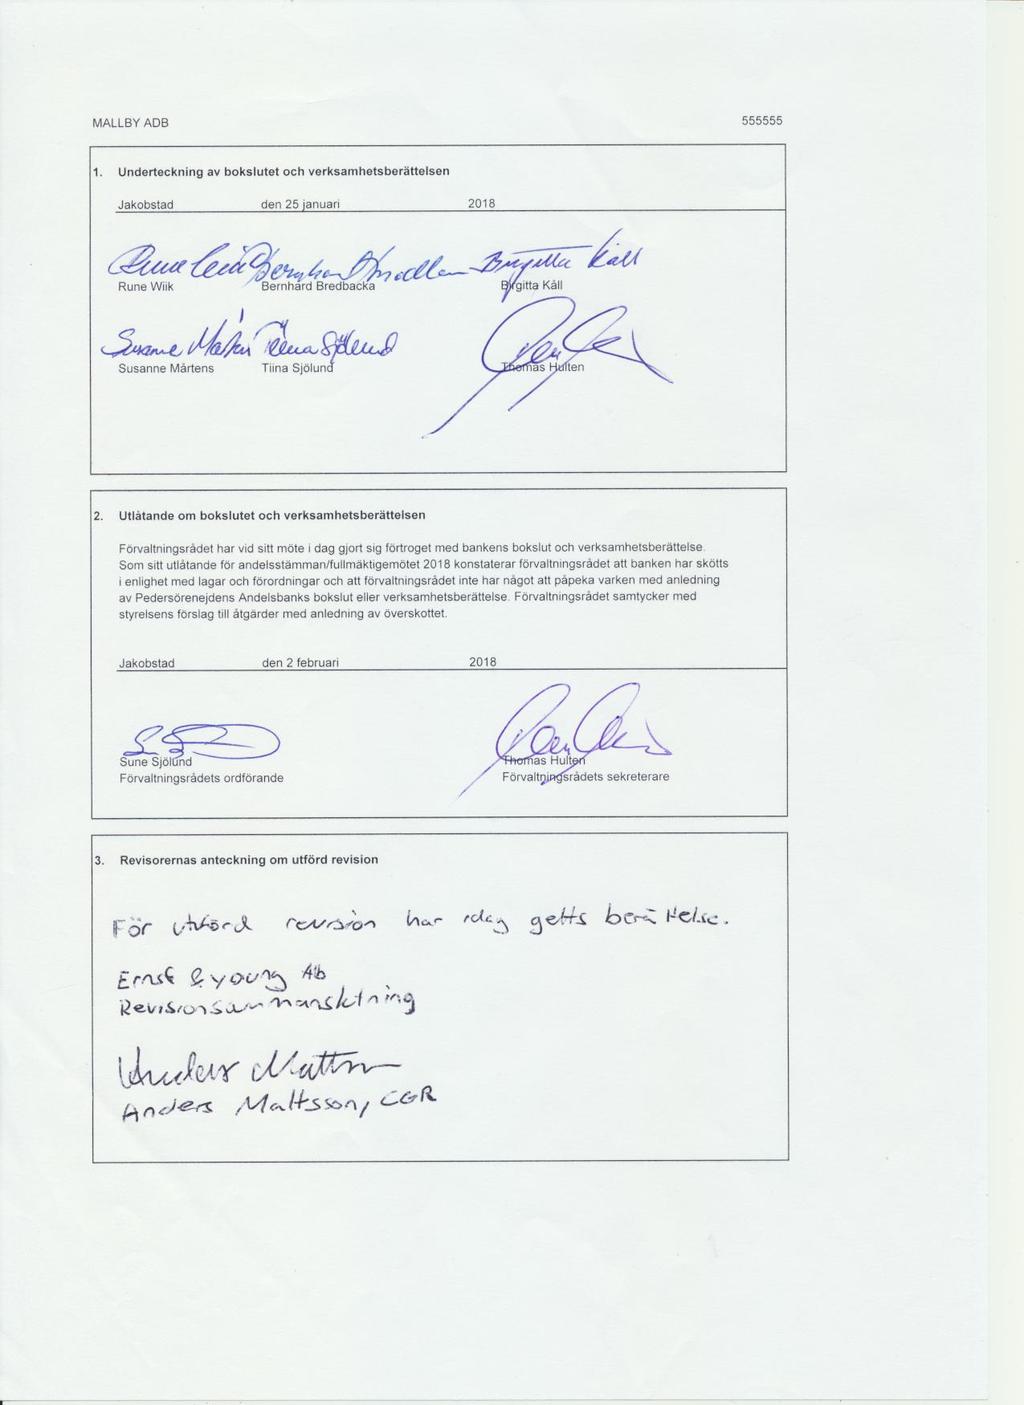 MALLBY ADB 555555
1. Underteckning av bokslutet och verksamhetsberättelsen
Jakobstad den 25 januari 2018
Rune Wiik Bernhard Bredbacka Birgitta Kåll
Rune Wiik Bernhard Bredbacka Birgitta Kåll
Susanne Mårtens Tiina Sjölund
Susanne Mårtens Tiina Sjölund Thomas Hulten
2. Utlåtande om bokslutet och verksamhetsberättelsen
Förvaltningsrådet har vid sitt möte i dag gjort sig förtroget med bankens bokslut och verksamhetsberättelse.
Som sitt utlåtande för andelsstämman/fullmäktigemötet 2018 konstaterar förvaltningsrådet att banken har skötts
i enlighet med lagar och förordningar och att förvaltningsrådet inte har något att påpeka varken med anledning
av Pedersörenejdens Andelsbanks bokslut eller verksamhetsberättelse. Förvaltningsrådet samtycker med
styrelsens förslag till åtgärder med anledning av överskottet.
Jakobstad den 2 februari 2018
Sune Sjölund Thomas Hulten
Förvaltningsrådets ordförande Förvaltningsrådets sekreterare
3. Revisorernas anteckning om utförd revision
För utförd revision har idag getts berättelse.
Ernst & young Ab
Revisionssammanslutning
Anders Mattsson
Anders Mattsson, CGR